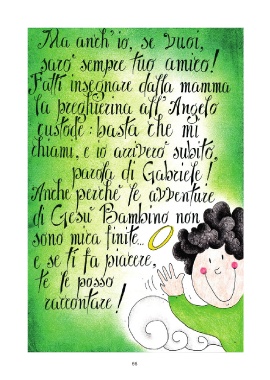 Ma anch'io, se vuoi,
sarò sempre tuo amico!
Fatti insegnare dalla mamma
la preghierina all'Angelo
custode: basta che mi
chiami, e io arriverò subito,
parola di Gabriele!
Anche perchè le avventure
di Gesù Bambino non
sono mica finite...
e se ti fa piacere,
te le posso
raccontare!